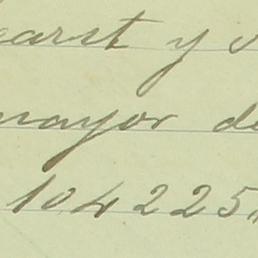 earst y
mayor de
104225